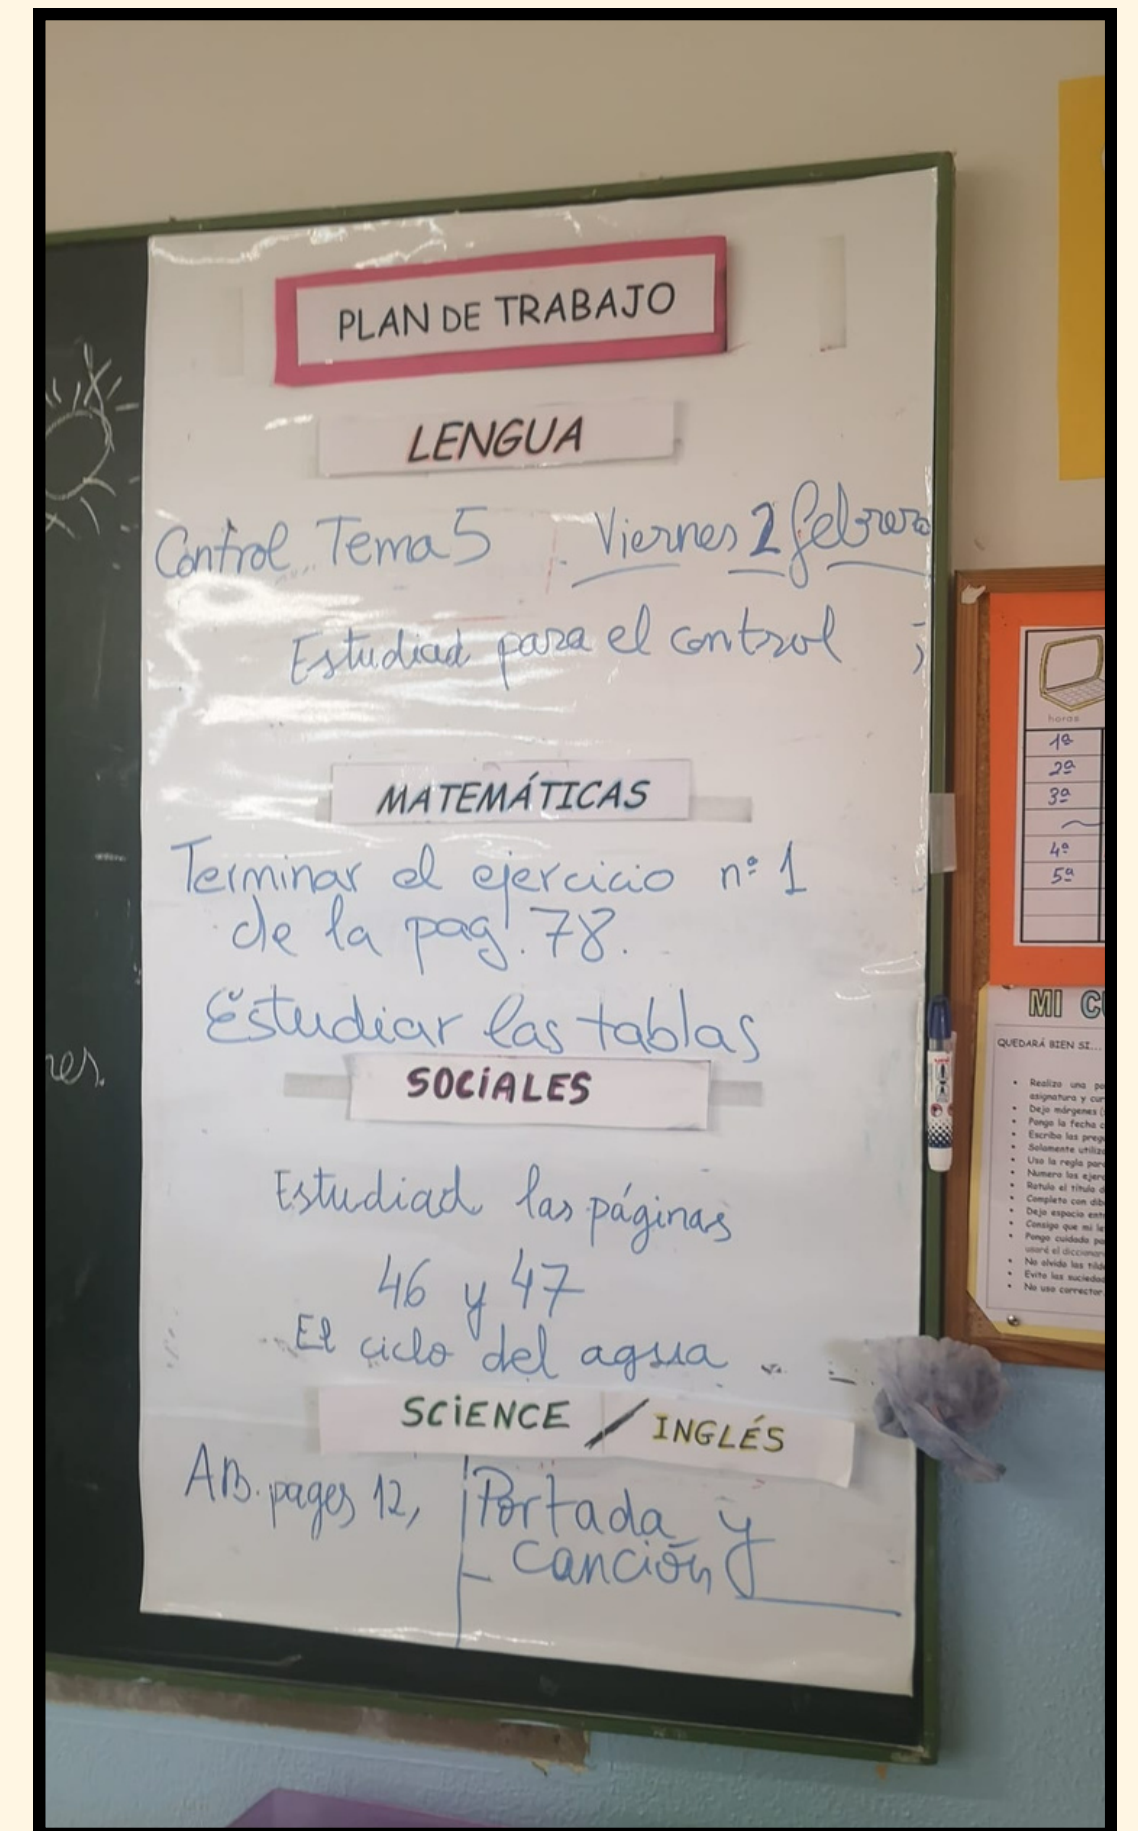 PLAN DE TRABAJO
LENGUA
Control Tema 5 Viernes 2 febrero
Estudiad para el control
MATEMÁTICAS
Terminar el ejercicio nº 1
de la pag. 78.
Estudiar las tablas
SOCIALES
Estudiad las páginas
46 y 47
El ciclo del agua
SCIENCE / INGLÉS
AB. pages 12,
Portada y
canción
horas
1ª
2ª
3ª
4ª
5ª
MI
QUEDARÁ BIEN SI...
• Realizo una
asignatura y
• Dejo márgenes
• Pongo la fecha
• Escribo las
• Solamente
• Uso la regla
• Numero los
• Rotulo el título
• Completo con
• Dejo espacio
• Consigo que mi
• Pongo cuidado
usaré el
• No olvido las
• Evito las
• No uso corrector